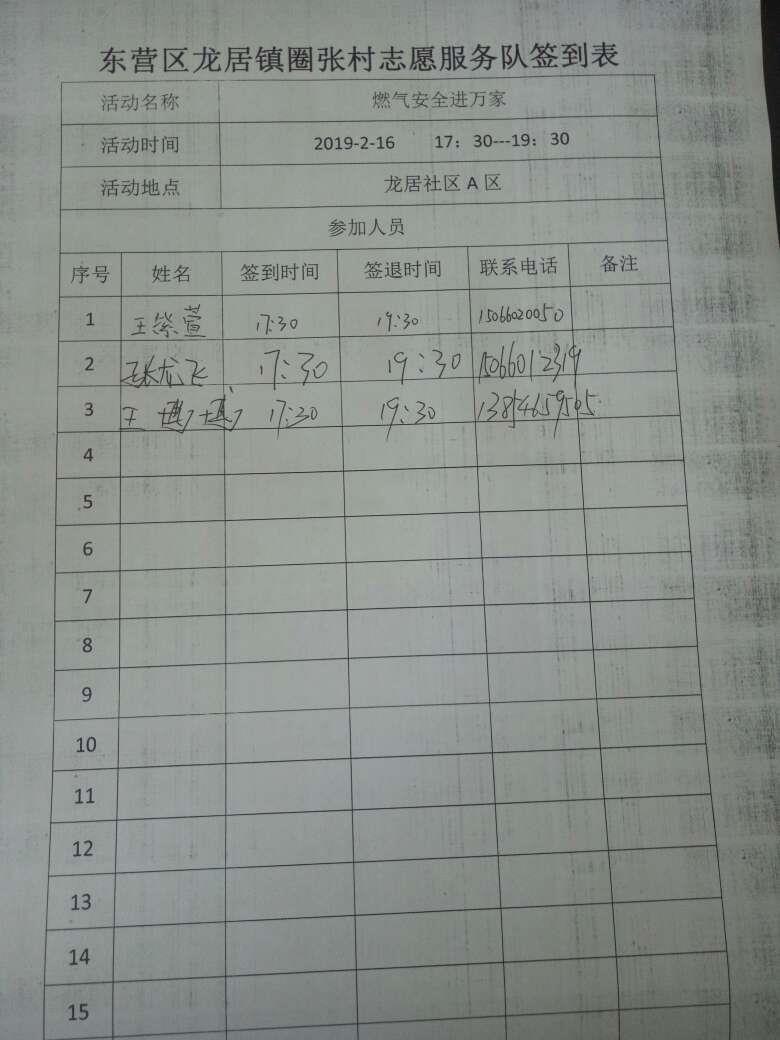 东营区龙居镇圈张村志愿服务队签到表
活动名称 燃气安全进万家
活动时间 2019-2-16 17：30---19：30
活动地点 龙居社区 A 区
参加人员
序号 姓名 签到时间 签退时间 联系电话 备注
1 王紫萱 17:30 19:30 15066020050
2 张龙飞 17:30 19:30 15066012319
3 王 17:30 19:30 13854659505
4
5
6
7
8
9
10
11
12
13
14
15